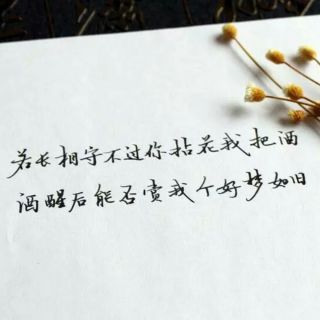 若长相守不过你拈花我把酒
酒醒后能否赏我个好梦如旧